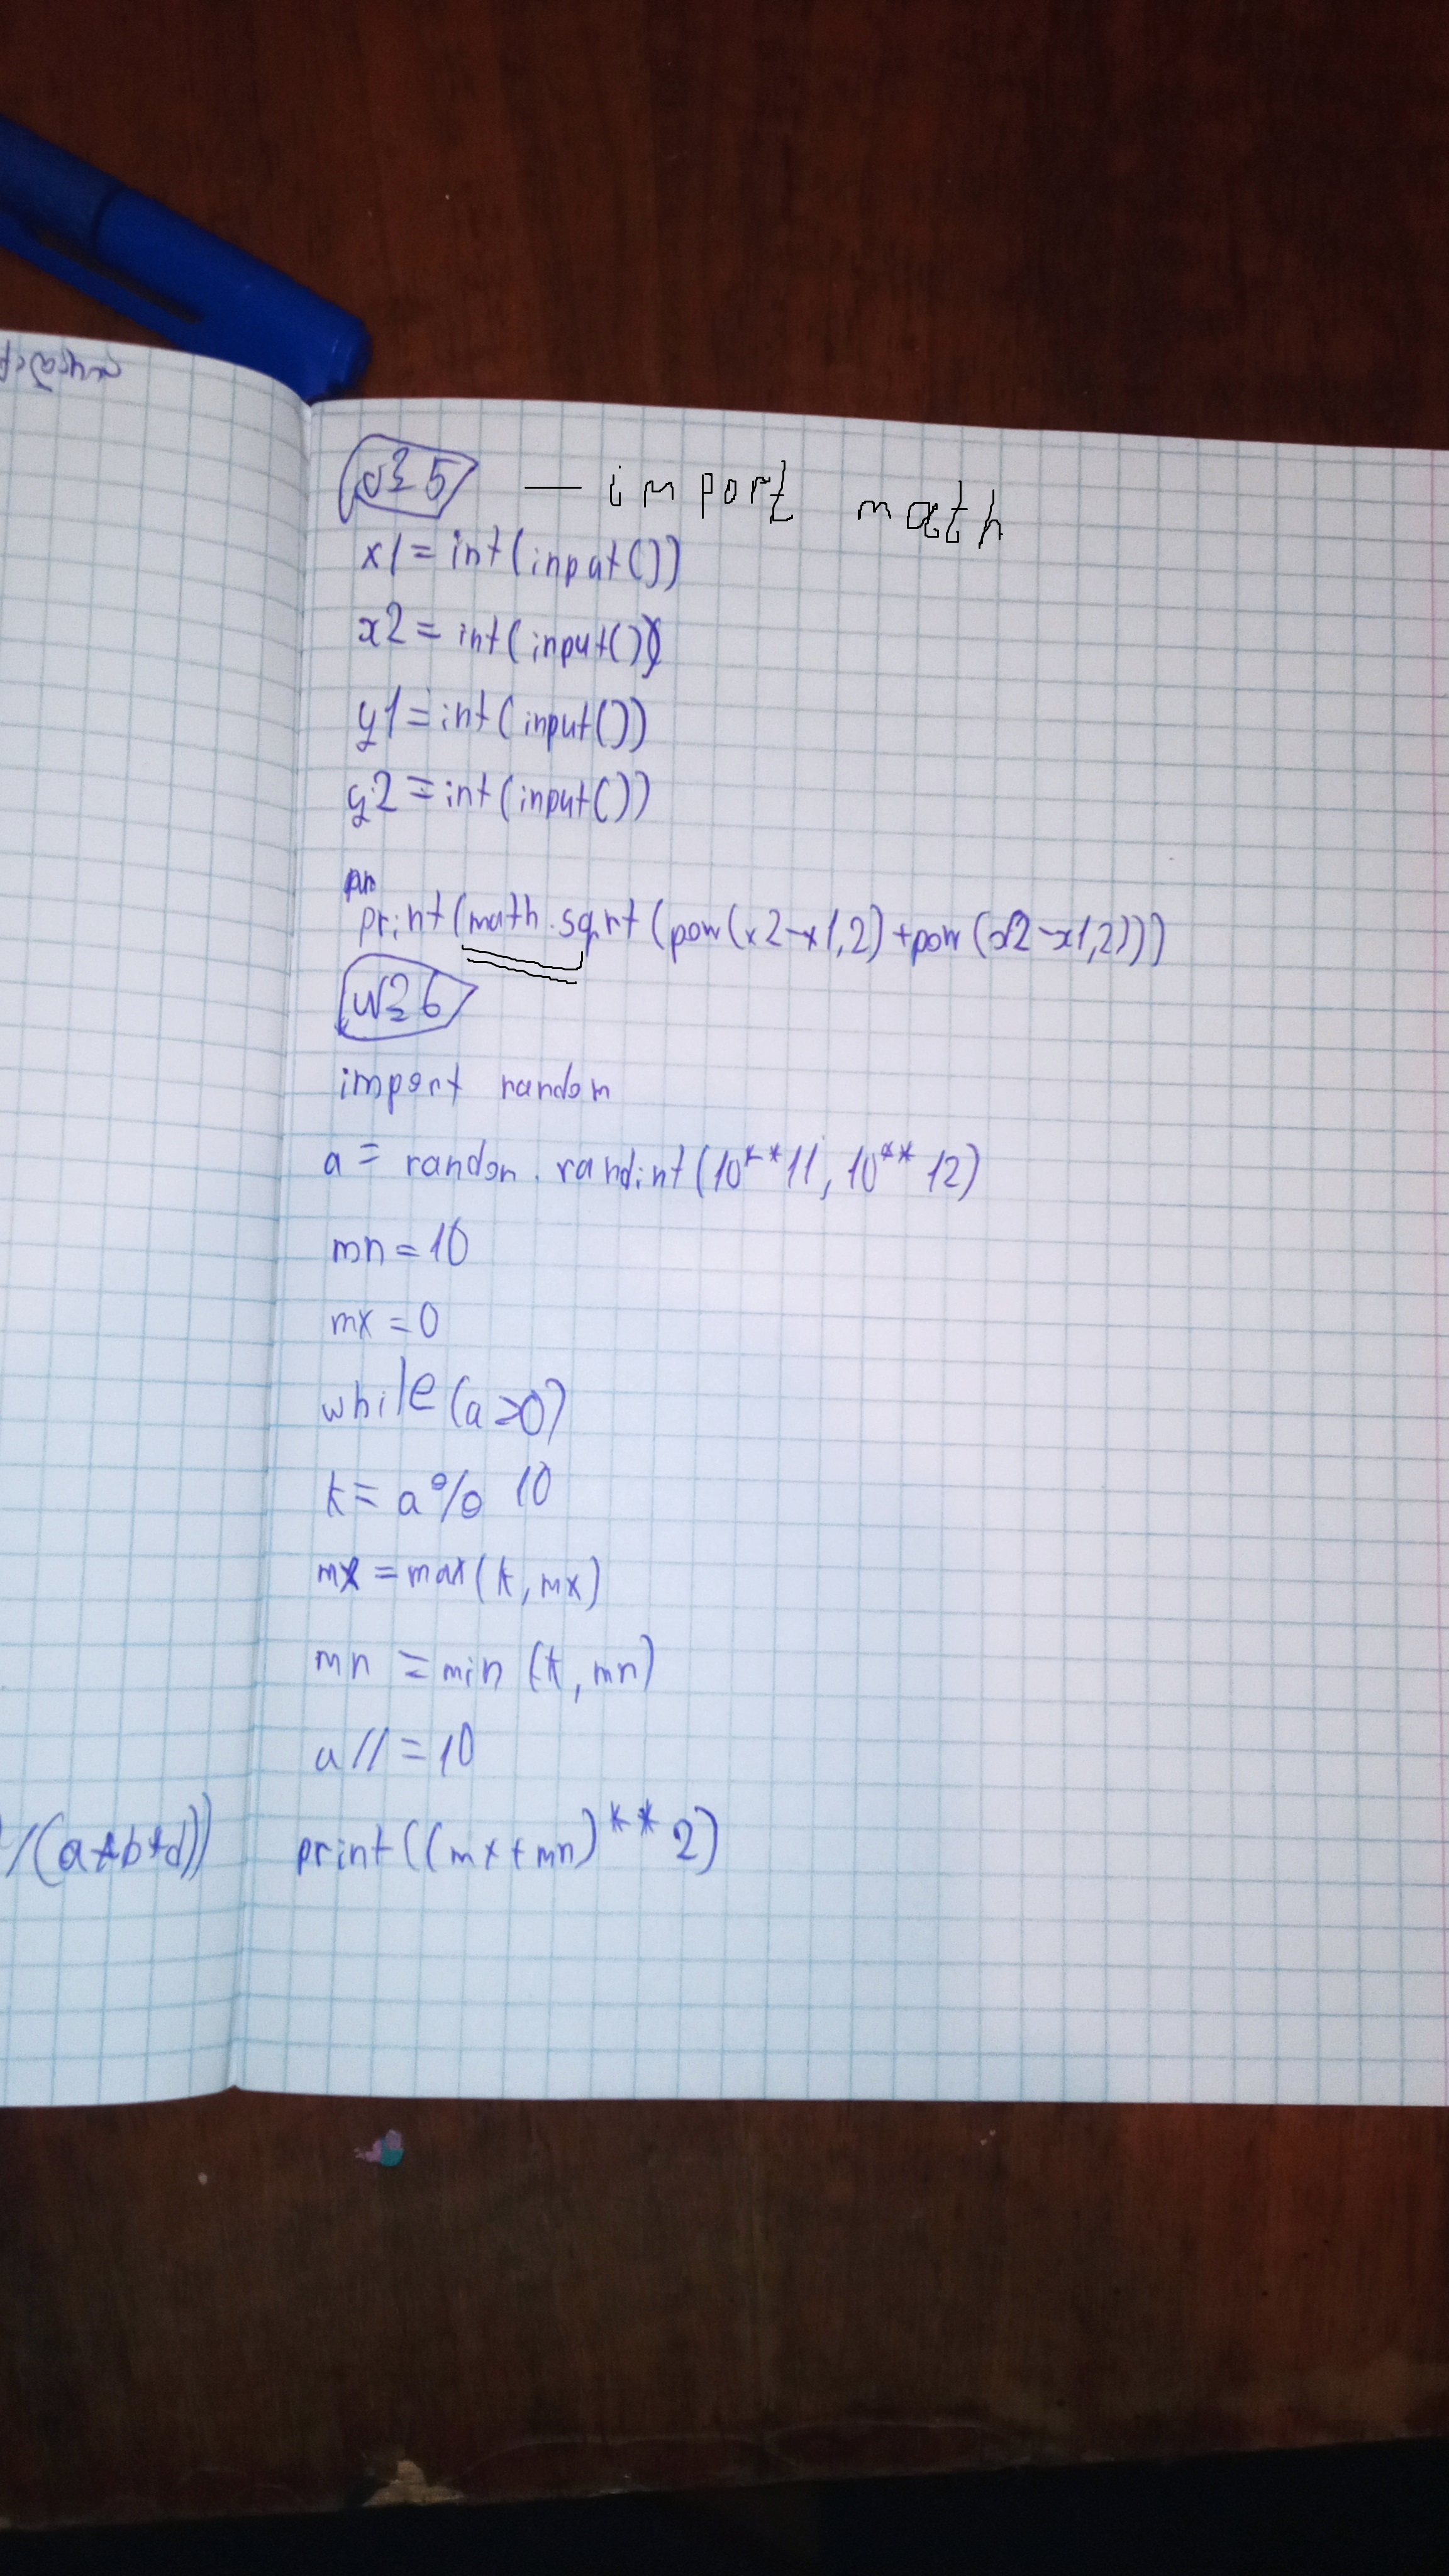 №5 — import math
x1=int(input())
x2=int(input())
y1=int(input())
y2=int(input())
pr
print(math.sqrt(pow(x2-x1,2)+pow(x2-x1,2)))
№6
import random
a = random.randint(10**11, 10**12)
mn=10
mx=0
while(a>0)
k= a% 10
mx=max(k,mx)
mn=min (k,mn)
a//=10
/(a+b+d))
print((mx+mn)**2)